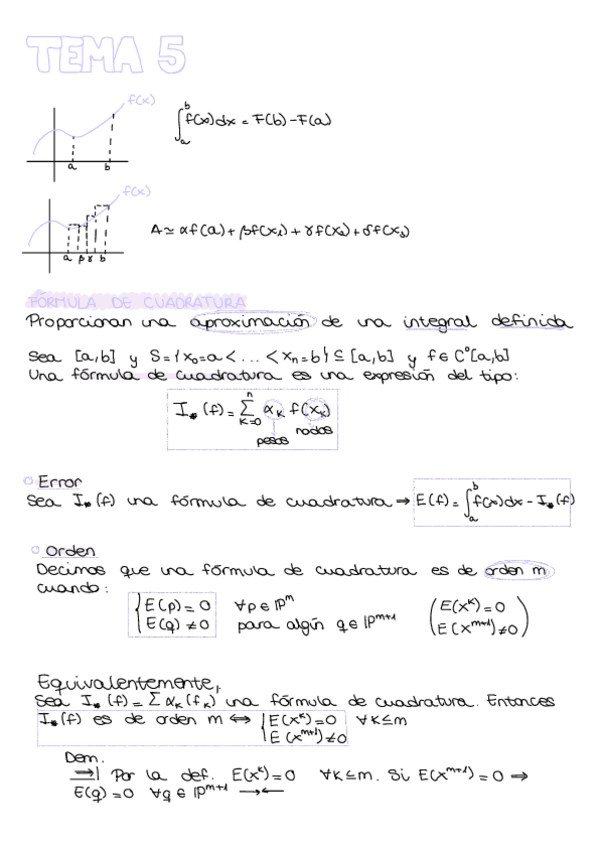 TEMA 5
f(x)
a b
∫_a^b f(x)dx = F(b) - F(a)
f(x)
a β γ b
A ≃ αf(a) + βf(x₁) + γf(x₂) + δf(x₃)
FÓRMULA DE CUADRATURA
Proporcionan una aproximación de una integral definida
Sea [a,b] y S = {x₀=a < ... < xₙ=b} ⊆ [a,b] y f ∈ C⁰[a,b]
Una fórmula de cuadratura es una expresión del tipo:
I*(f) = Σ_{k=0}^{n} α_k f(x_k)
pesos nodos
Error
Sea I*(f) una fórmula de cuadratura → E(f) = ∫_a^b f(x)dx - I*(f)
Orden
Decimos que una fórmula de cuadratura es de orden m
cuando:
{ E(p) = 0 ∀p ∈ ℙ^m (E(x^k) = 0
{ E(q) ≠ 0 para algún q ∈ ℙ^{m+1} E(x^{m+1}) ≠ 0)
Equivalentemente,
Sea I*(f) = Σ α_k (f_k) una fórmula de cuadratura. Entonces
I*(f) es de orden m ⟺ { E(x^k) = 0 ∀k ≤ m
E(x^{m+1}) ≠ 0
Dem.
⇒| Por la def. E(x^k) = 0 ∀k ≤ m. Si E(x^{m+1}) = 0 ⇒
E(q) = 0 ∀q ∈ ℙ^{m+1} →←